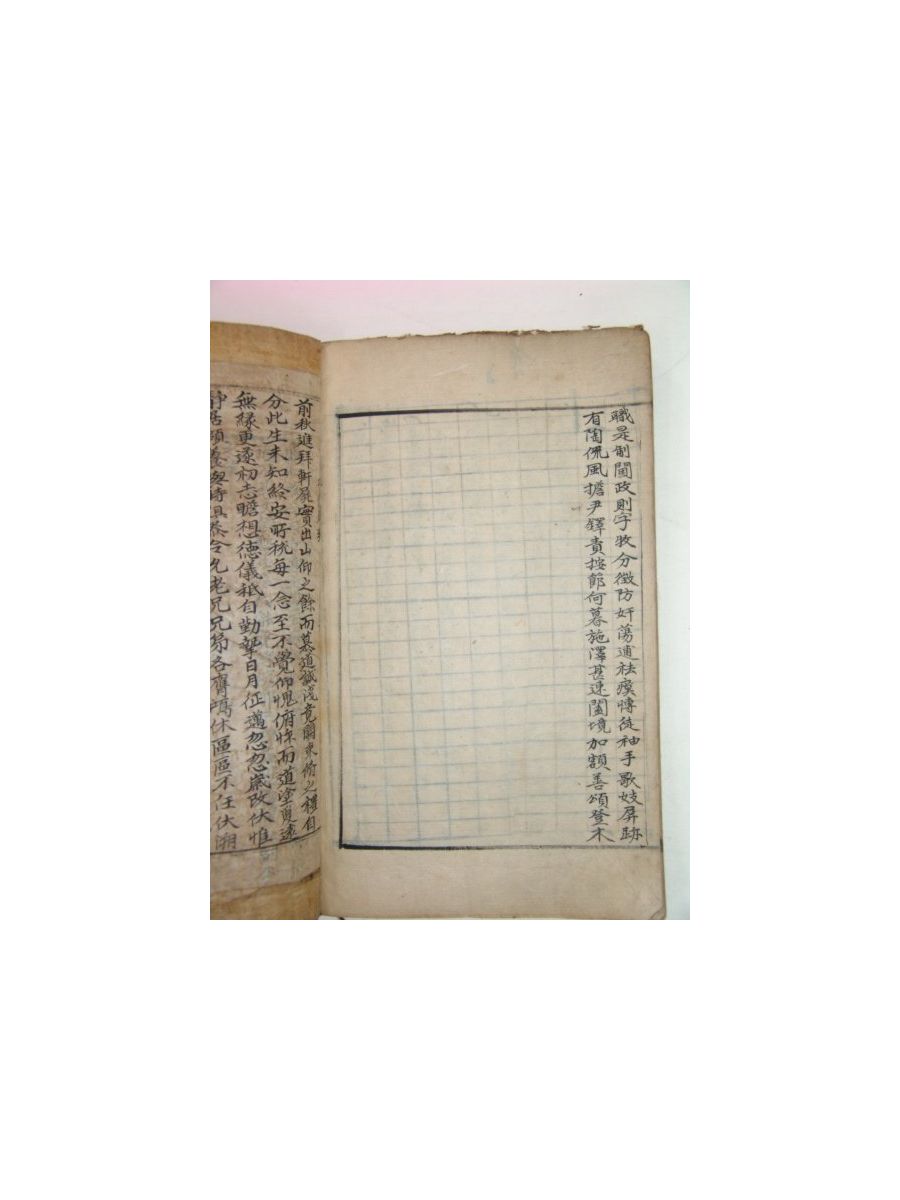 職是制閫政則字牧分徵防奸蕩逋祛瘼博徒袖手歌妓屏跡
有陶侃風擔尹鐸責按節何暮施澤甚速闔境加額善頌登木
前秋進拜軒屛實出山仰之餘而慕道誠淺竟闕束脩之禮自
分此生未知終安所稅每一念至不覺仰愧俯怍而道塗夐遠
無緣更遂初志瞻想德儀秪自勤摯日月征邁忽忽歲改伏惟
靜居頤養與時俱泰令允老兄兄弟各膺嘏休區區不任伏溯